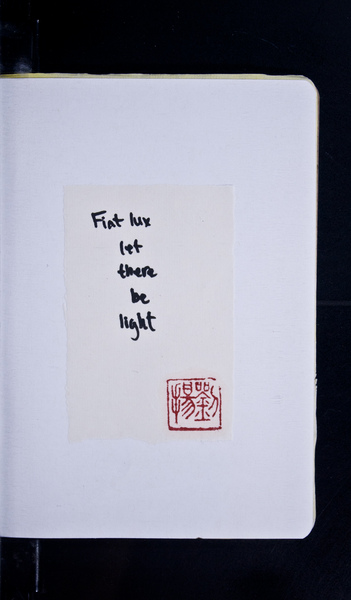 Fiat lux
let
there
be
light
劉揚